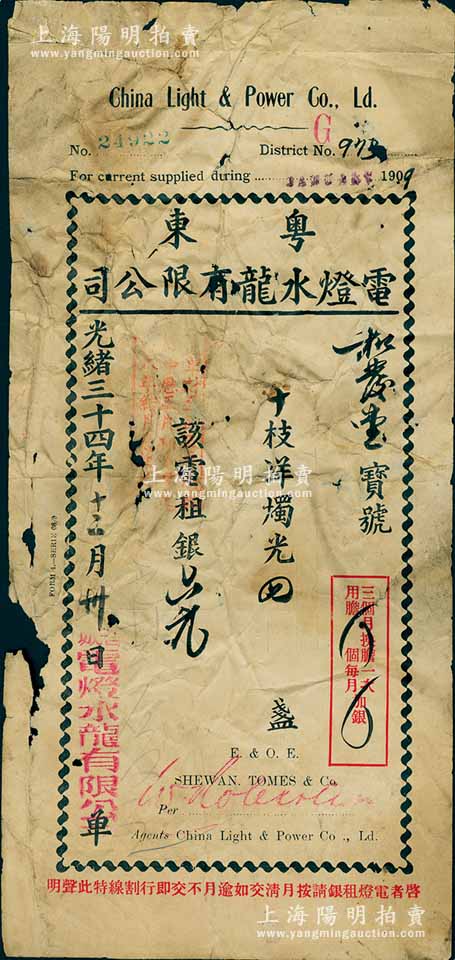 上海陽明拍賣
www.yangmingauction.com
China Light & Power Co., Ld.
G
No. 24922
District No. 973
For current supplied during JANUARY 1909
東粵
司公限有龍水燈電
堂寶號
十枝洋燭光四盞
該電租銀
光緒三十四年十二月卅日
電燈水龍有限公
單
三個月換膽一次
用膽個每月加銀
上海陽明拍賣
www.yangmingauction.com
FORM 4.—SERIE
E. & O. E.
SHEWAN, TOMES & Co.
Per
Agents China Light & Power Co., Ld.
明聲此特線割行即交不月逾如交清月按請銀租燈電者啓
上海陽明拍賣
www.yangmingauction.com